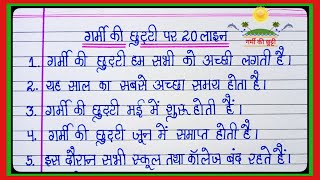 गर्मी की छुट्टी पर 20 लाइन
गर्मी की छुट्टी
1. गर्मी की छुट्टी हम सभी को अच्छी लगती है।
2. यह साल का सबसे अच्छा समय होता है।
3. गर्मी की छुट्टी मई में शुरू होती हैं।
4. गर्मी की छुट्टी जून में समाप्त होती है।
5. इस दौरान सभी स्कूल तथा कॉलेज बंद रहते हैं।